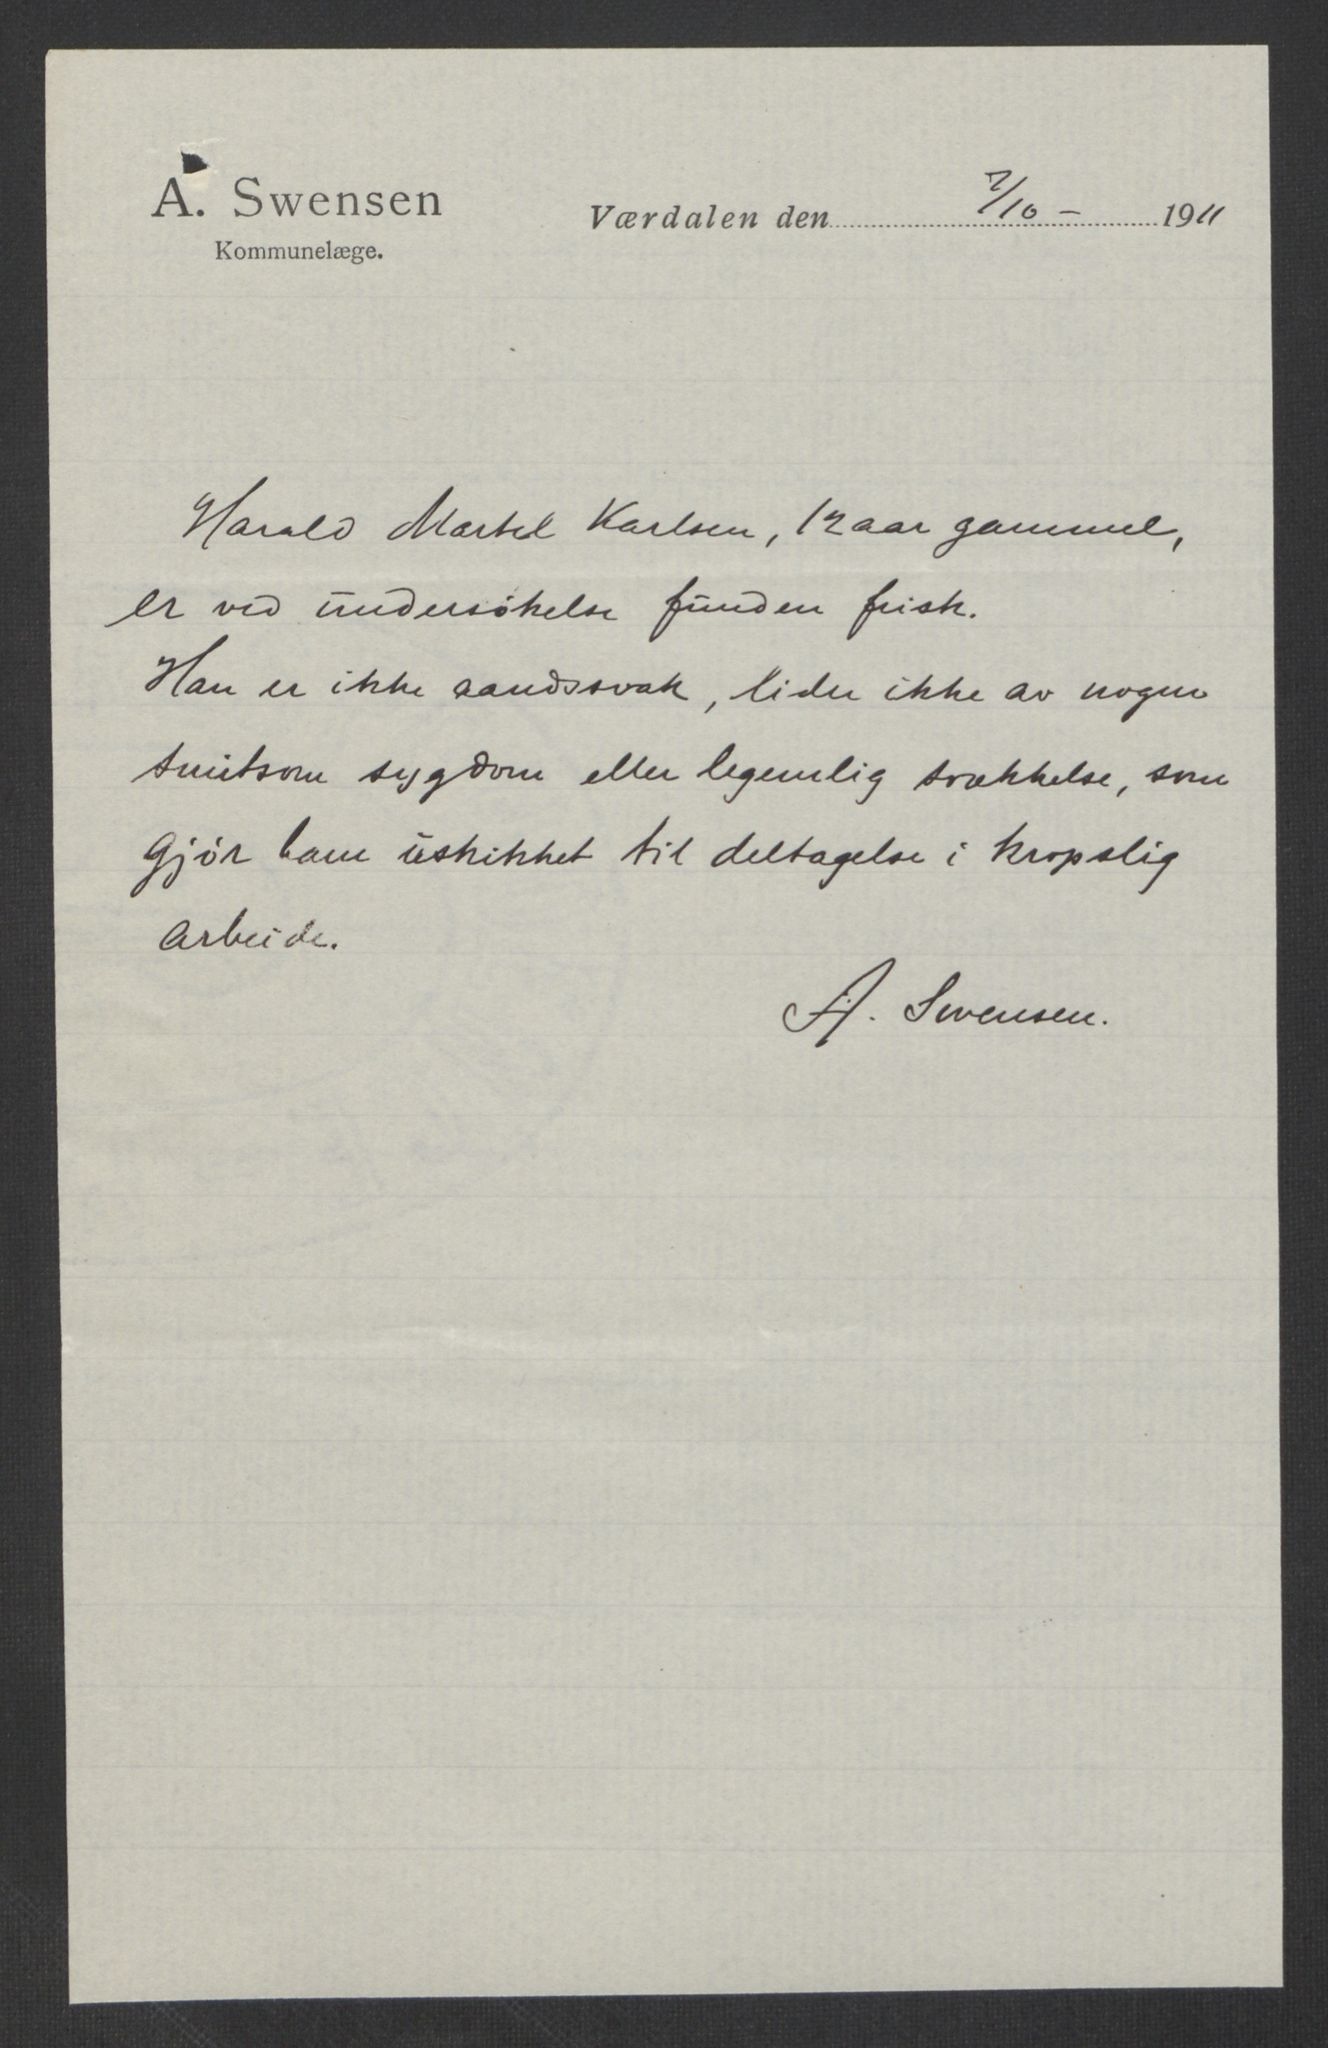 A. Swensen
Kommunelæge.
Værdalen den 7/10 - 1911
Harald Martel Karlsen, 12 aar gammel,
er ved undersökelse funden frisk.
Han er ikke aandssvak, lider ikke av nogen
smitsom sygdom eller legemlig svækkelse, som
gjör ham uskikket til deltagelse i kropslig
arbeide.
A. Swensen.